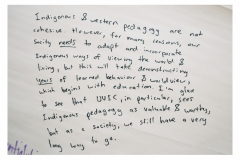 Indigenous & western pedagogy are not
cohesive. However, for many reasons, our
society needs to adapt and incorporate
Indigenous ways of viewing the world &
living, but this will take deconstructing
years of learned behaviour & worldview,
which begins with education. I'm glad
to see that UVIC, in particular, sees
Indigenous pedagogy as valuable & worthy,
but as a society, we still have a very
long way to go.